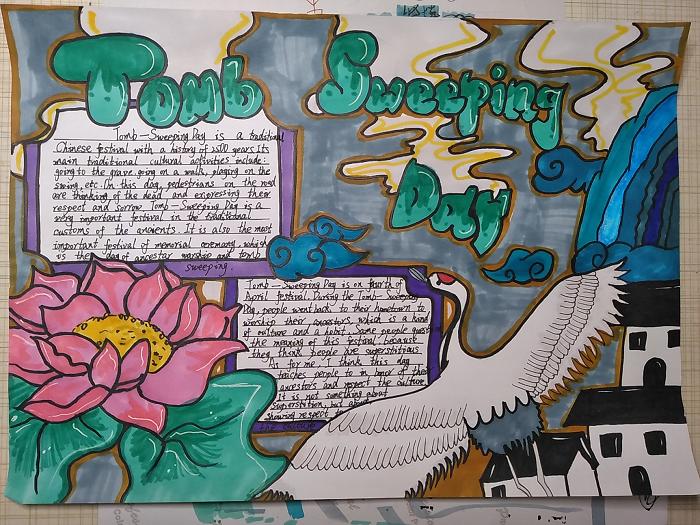 Tomb Sweeping
Day
Tomb-Sweeping Day is a traditional
Chinese festival with a history of 2500 years. Its
main traditional cultural activities include:
going to the grave, going on a walk, playing on the
swing, etc. On this day, pedestrians on the road
are thinking of the dead, and expressing their
respect and sorrow. Tomb Sweeping Day is a
very important festival in the traditional
customs of the ancients. It is also the most
important festival of memorial ceremony, which
is the day of ancestor worship and tomb
sweeping.
Tomb-Sweeping Day is on fourth of
April festival. During the Tomb-Sweeping
Day, people went back to their hometown to
worship their ancestors which is a kind
of culture and a habit. Some people
the meaning of this festival, because
they think people are superstitious.
As for me, I think this day
teaches people to in honor of their
ancestors and respect the culture.
It is not something about
superstition, but about
showing respect to
the culture